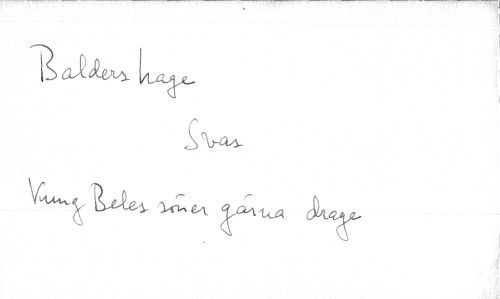 Balders hage
Svar
Kung Beles söner gärna drage